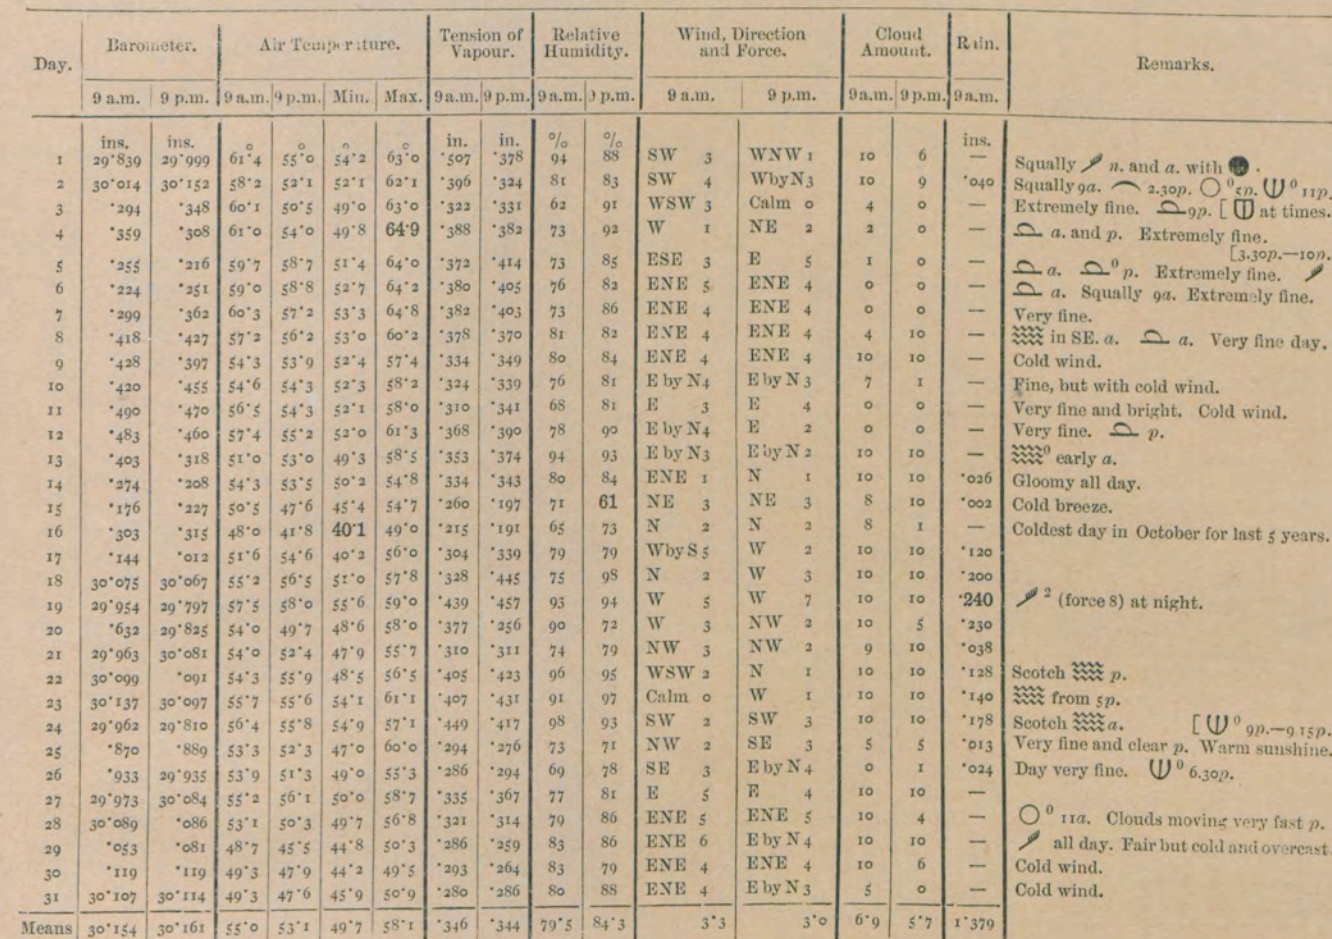 Day. Barometer. Air Temperature. Tension of Vapour. Relative Humidity. Wind, Direction and Force. Cloud Amount. Rain. Remarks.
9 a.m. 9 p.m. 9 a.m. 9 p.m. Min. Max. 9 a.m. 9 p.m. 9 a.m. 9 p.m. 9 a.m. 9 p.m. 9 a.m. 9 p.m. 9 a.m.
ins. ins. ° ° ° ° in. in. % % ins.
1 29·839 29·999 61·4 55·0 54·2 63·0 ·507 ·378 94 88 SW 3 WNW 1 10 6 — Squally n. and a. with .
2 30·014 30·152 58·2 52·1 52·1 62·1 ·396 ·324 81 83 SW 4 WbyN 3 10 9 ·040 Squally 9a. 2.30p. ⁰ 5p. ⁰ 11p.
3 ·294 ·348 60·1 50·5 49·0 63·0 ·322 ·331 62 91 WSW 3 Calm 0 4 0 — Extremely fine. 9p. [ at times.
4 ·359 ·308 61·0 54·0 49·8 64·9 ·388 ·382 73 92 W 1 NE 2 2 0 — a. and p. Extremely fine.
[3.30p.—10p.
5 ·255 ·216 59·7 58·7 51·4 64·0 ·372 ·414 73 85 ESE 3 E 5 1 0 — a. ⁰ p. Extremely fine.
6 ·224 ·251 59·0 58·8 52·7 64·2 ·380 ·405 76 82 ENE 5 ENE 4 0 0 — a. Squally 9a. Extremely fine.
7 ·299 ·362 60·3 57·2 53·3 64·8 ·382 ·403 73 86 ENE 4 ENE 4 0 0 — Very fine.
8 ·418 ·427 57·2 56·2 53·0 60·2 ·378 ·370 81 82 ENE 4 ENE 4 4 10 — in SE. a. a. Very fine day.
9 ·428 ·397 54·3 53·9 52·4 57·4 ·334 ·349 80 84 ENE 4 ENE 4 10 10 — Cold wind.
10 ·420 ·455 54·6 54·3 52·3 58·2 ·324 ·339 76 81 E by N 4 E by N 3 7 1 — Fine, but with cold wind.
11 ·490 ·470 56·5 54·3 52·1 58·0 ·310 ·341 68 81 E 3 E 4 0 0 — Very fine and bright. Cold wind.
12 ·483 ·460 57·4 55·2 52·0 61·3 ·368 ·390 78 90 E by N 4 E 2 0 0 — Very fine. p.
13 ·403 ·318 51·0 53·0 49·3 58·5 ·353 ·374 94 93 E by N 3 E by N 2 10 10 — ⁰ early a.
14 ·274 ·208 54·3 53·5 50·2 54·8 ·334 ·343 80 84 ENE 1 N 1 10 10 ·026 Gloomy all day.
15 ·176 ·227 50·5 47·6 45·4 54·7 ·260 ·197 71 61 NE 3 NE 3 8 10 ·002 Cold breeze.
16 ·303 ·315 48·0 41·8 40·1 49·0 ·215 ·191 65 73 N 2 N 2 8 1 — Coldest day in October for last 5 years.
17 ·144 ·012 51·6 54·6 40·2 56·0 ·304 ·339 79 79 WbyS 5 W 2 10 10 ·120
18 30·075 30·067 55·2 56·5 51·0 57·8 ·328 ·445 75 98 N 2 W 3 10 10 ·200
19 29·954 29·797 57·5 58·0 55·6 59·0 ·439 ·457 93 94 W 5 W 7 10 10 ·240 ² (force 8) at night.
20 ·632 29·825 54·0 49·7 48·6 58·0 ·377 ·256 90 72 W 3 NW 2 10 5 ·230
21 29·963 30·081 54·0 52·4 47·9 55·7 ·310 ·311 74 79 NW 3 NW 2 9 10 ·038
22 30·099 ·091 54·3 55·9 48·5 56·5 ·405 ·423 96 95 WSW 2 N 1 10 10 ·128 Scotch p.
23 30·137 30·097 55·7 55·6 54·1 61·1 ·407 ·431 91 97 Calm 0 W 1 10 10 ·140 from 5p.
24 29·962 29·810 56·4 55·8 54·9 57·1 ·449 ·417 98 93 SW 2 SW 3 10 10 ·178 Scotch a. [ ⁰ 9p.—9 15p.
25 ·870 ·889 53·3 52·3 47·0 60·0 ·294 ·276 73 71 NW 2 SE 3 5 5 ·013 Very fine and clear p. Warm sunshine.
26 ·933 29·935 53·9 51·3 49·0 55·3 ·286 ·294 69 78 SE 3 E by N 4 0 1 ·024 Day very fine. ⁰ 6.30p.
27 29·973 30·084 55·2 56·1 50·0 58·7 ·335 ·367 77 81 E 5 E 4 10 10 —
28 30·089 ·086 53·1 50·3 49·7 56·8 ·321 ·314 79 86 ENE 5 ENE 5 10 4 — ⁰ 11a. Clouds moving very fast p.
29 ·053 ·081 48·7 45·5 44·8 50·3 ·286 ·259 83 86 ENE 6 E by N 4 10 10 — all day. Fair but cold and overcast.
30 ·119 ·119 49·3 47·9 44·2 49·5 ·293 ·264 83 79 ENE 4 ENE 4 10 6 — Cold wind.
31 30·107 30·114 49·3 47·6 45·9 50·9 ·280 ·286 80 88 ENE 4 E by N 3 5 0 — Cold wind.
Means 30·154 30·161 55·0 53·1 49·7 58·1 ·346 ·344 79·5 84·3 3·3 3·0 6·9 5·7 1·379